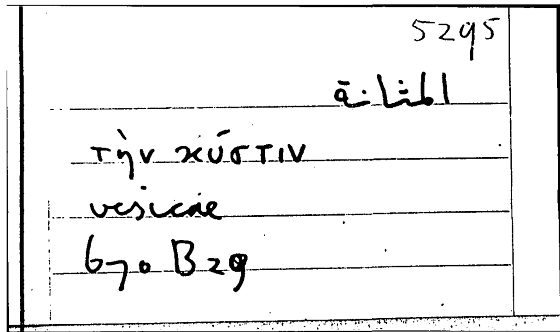 5295
المثانة
τὴν κύστιν
vesicae
670 B 29